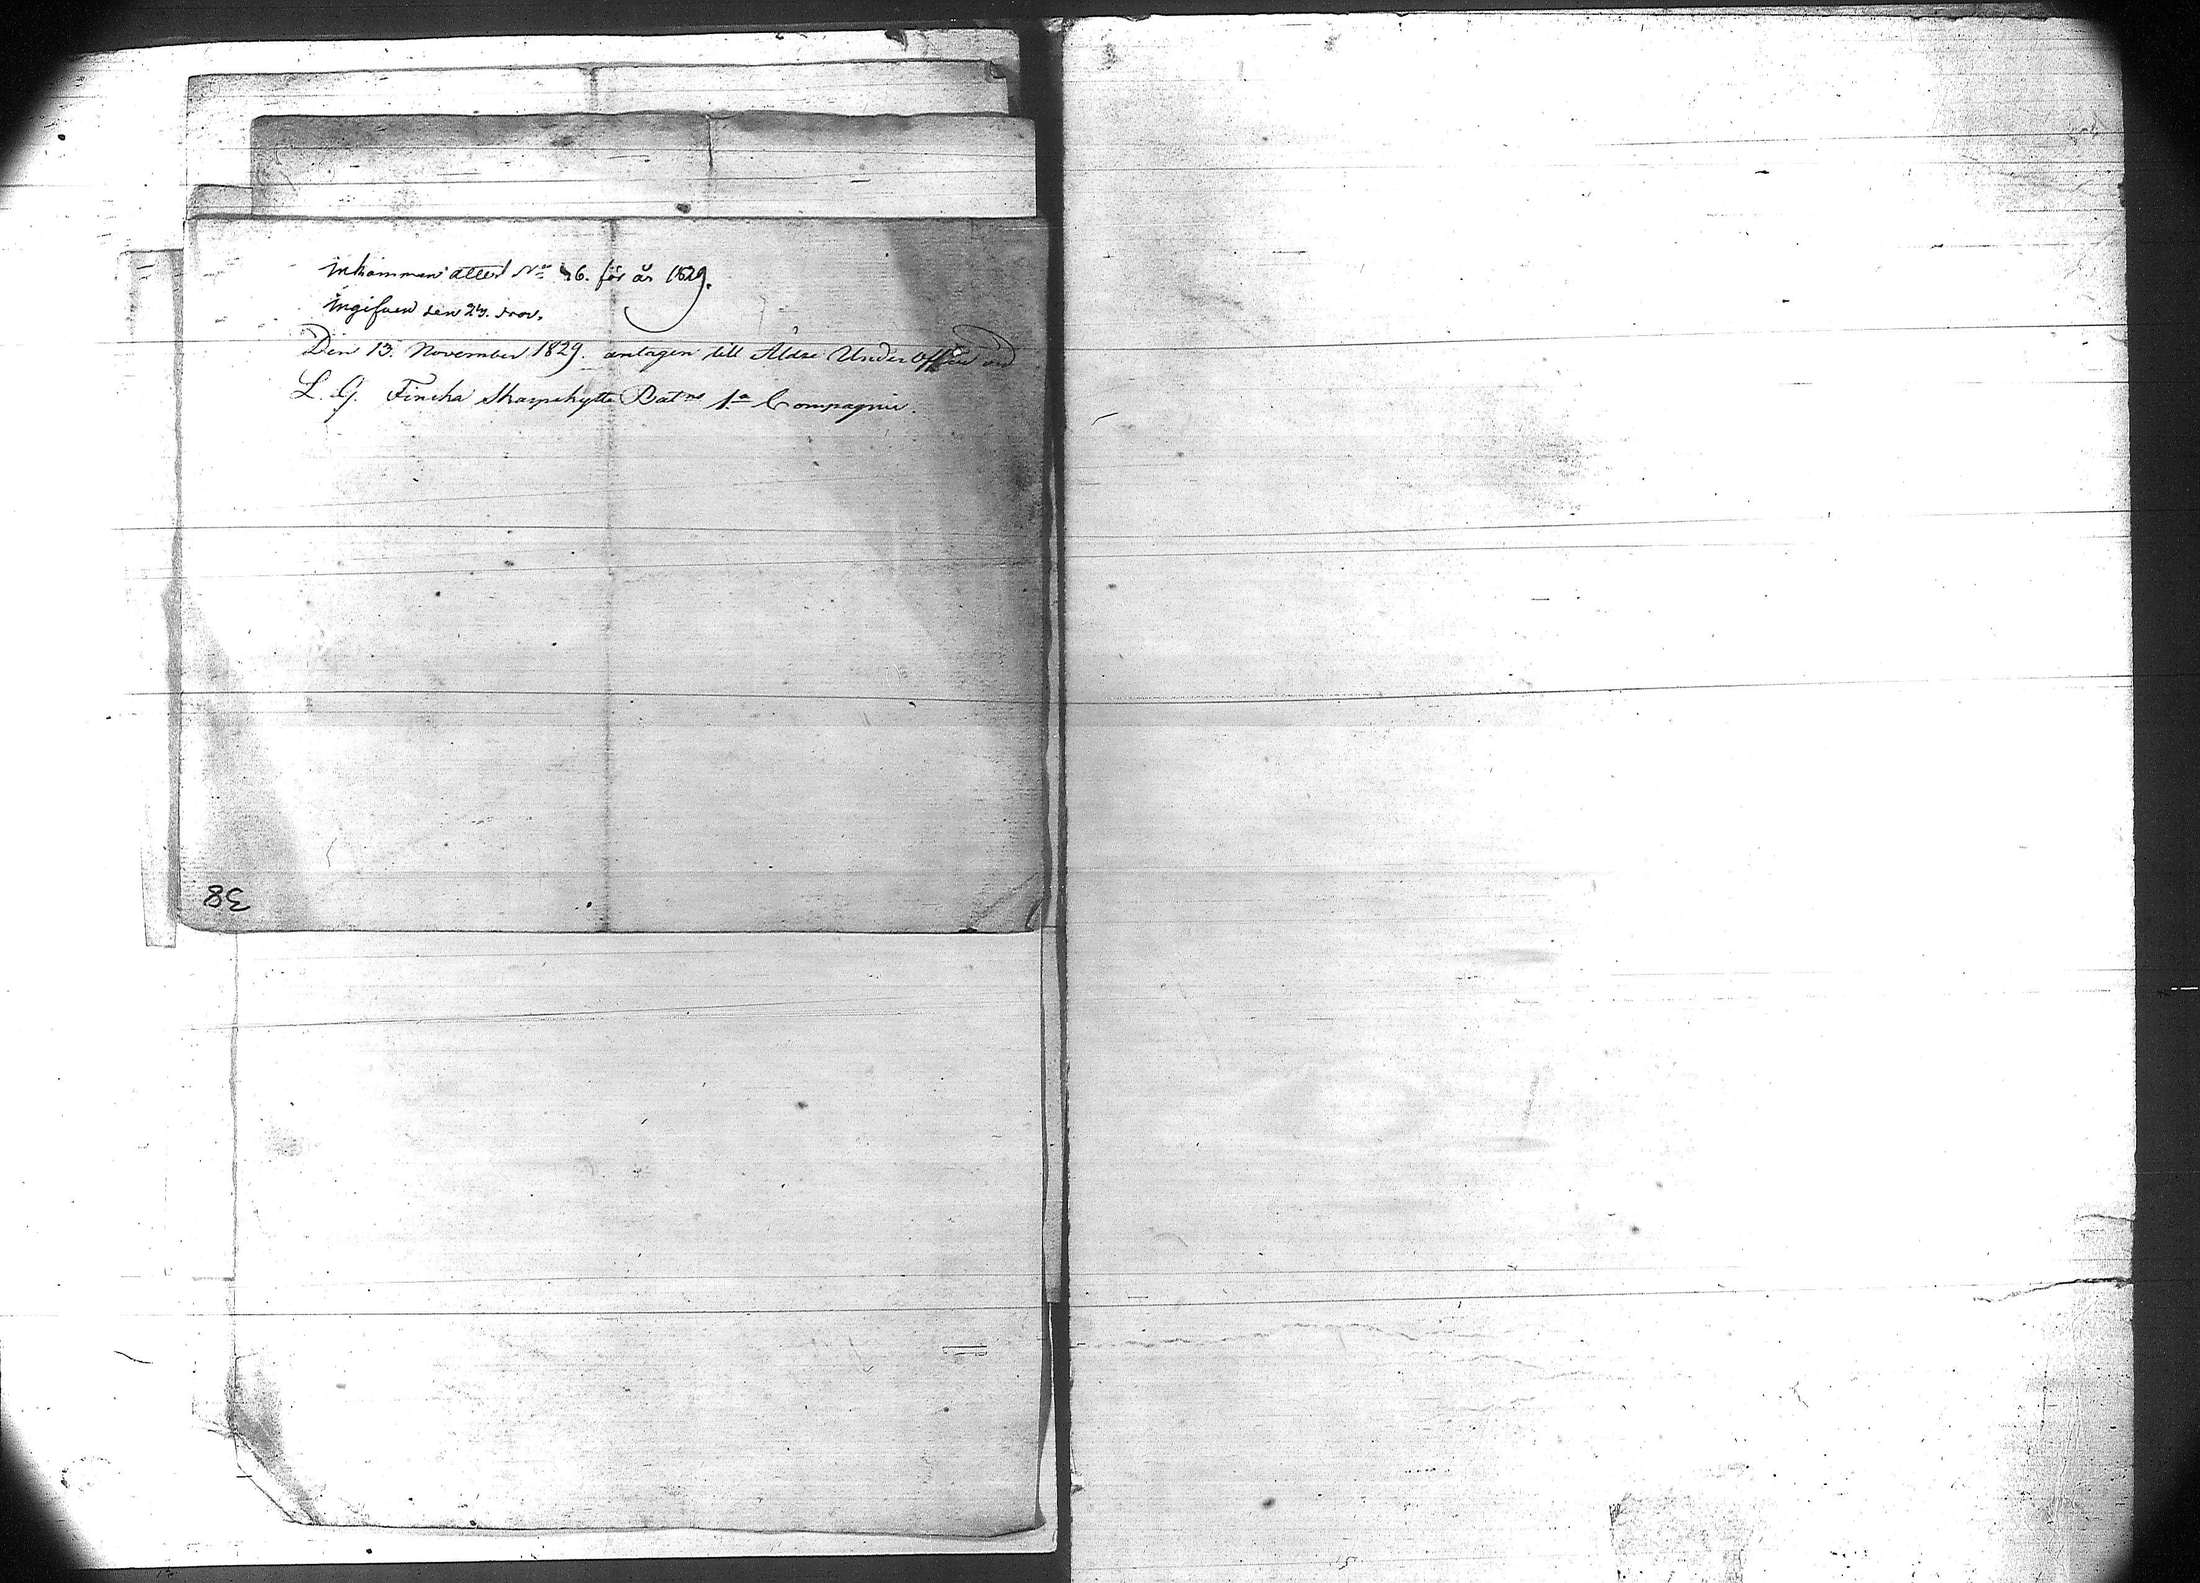 inkommen attest No 46. för år 1829.
ingifven den 24. Nov.
Den 13. November 1829. antagen till Äldre Under Officer vid
L. G. Finska Skarpskytte Batns 1a Compagnie.
38